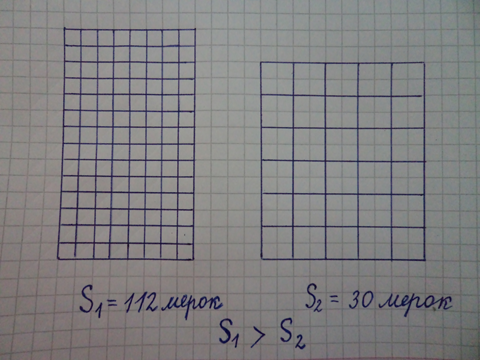 S₁ = 112 мерок
S₂ = 30 мерок
S₁ > S₂